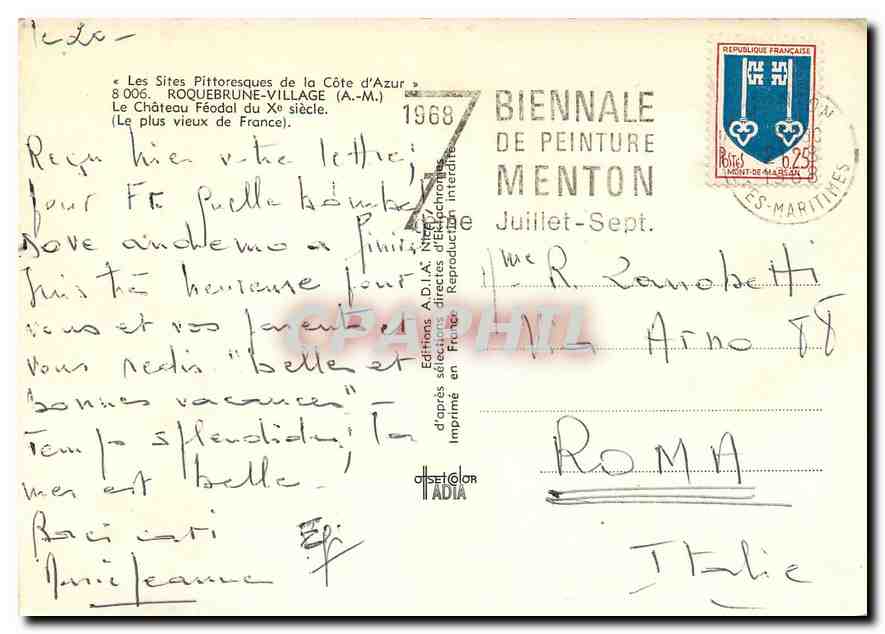 le 20 -
« Les Sites Pittoresques de la Côte d'Azur »
8 006. ROQUEBRUNE-VILLAGE (A.-M.)
Le Château Féodal du Xe siècle.
(Le plus vieux de France).
Reçu hier votre lettre,
pour Quelle bombe
Dove andremo a finir
suis très heureuse pour
vous et vos parents et
vous redis "belles et
bonnes vacances" -
Temps splendide, la
mer est belle -
Baci cari
Marie Jeanne
Editions A.D.I.A. Nice
d'après sélections directes d'Ektachromes
Imprimé en France Reproduction interdite
offset color
ADIA
1968
7
ème
BIENNALE
DE PEINTURE
MENTON
Juillet-Sept.
REPUBLIQUE FRANÇAISE
POSTES
0,25
MONT-DE-MARSAN
1968
ES-MARITIMES
CPAPHIL
Mme R. Zanobetti
Via Arno 88
ROMA
Italie